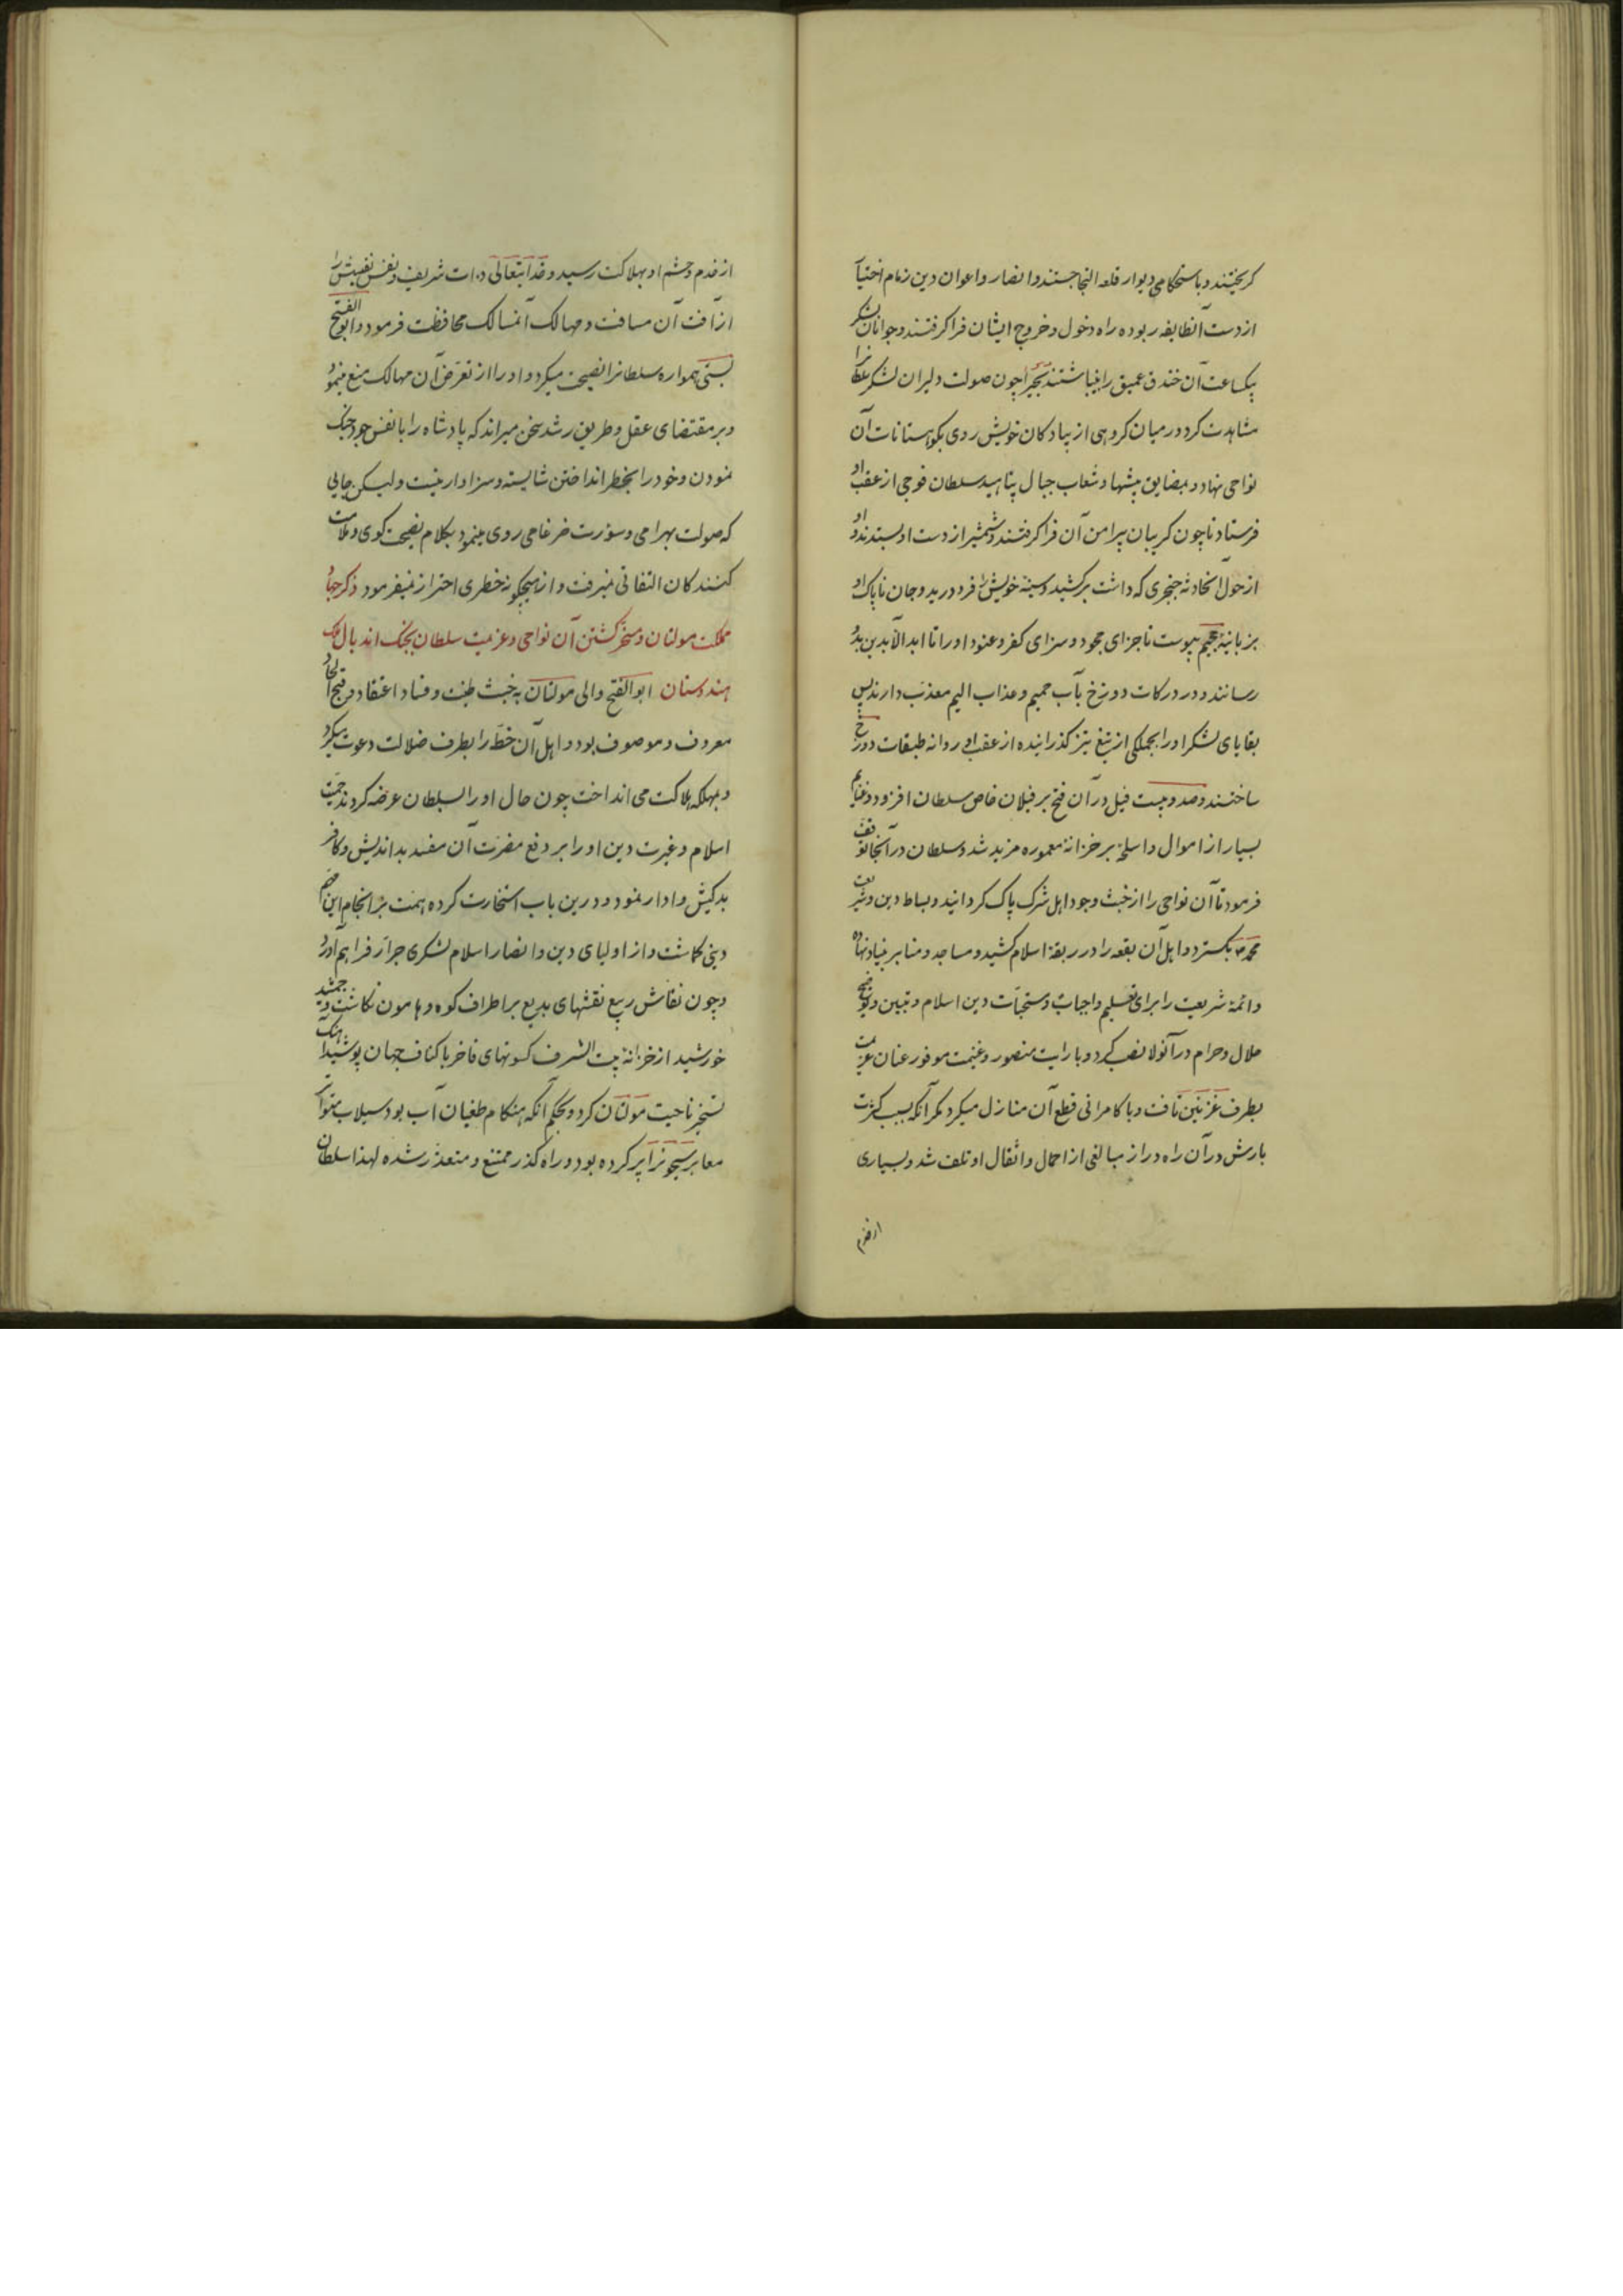 کریختند و باستحکامی دیوار قلعه التجا جستند و انصار و اعوان دین زمام اختیار
از دست آنطایفه ربوده راه دخول و خروج ایشان فرا کرفتند و جوانان لشکر
بیکساعت آن خندق عمیق را بینباشتند بجیرا چون صولت دلیران لشکر سلطانرا
مشاهدت کرد در میان کروهی از پیادکان خویش روی بکوهستانات آن
نواحی نهاد و بمضایق بیشها و شعاب جبال پناهید سلطان فوجی از عقب او
فرستاد تا چون کریبان پیرامن آن فرا کرفتند و شمشیر از دست او بستدند و او
از حول آنحادثه خنجری که داشت برکشید و سینه خویش را فرو درید و جان ناپاک او
بزبانیه جحیم پیوست تا جزای جحود و سزای کفر و عنود او را تا ابد الآبدین بدو
رسانند و در درکات دوزخ بآب حمیم و عذاب الیم معذب دارند پس
بقایای لشکر او را بجملکی از تیغ تیز کذرانیده از عقب او روانه طبقات دوزخ
ساختند و صد و بیست فیل در آن فتح بر فیلان خاص سلطان افزود و غنایم
بسیار از اموال و اسلحه بر خزانه معموره مزید شد و سلطان در آنجا توقف
فرمود تا آن نواحی را از خبث وجود اهل شرک پاک کردانید و بساط دین و شریعت
محمد بکسترد و اهل آن بقعه را در ربقه اسلام کشید و مساجد و منابر بنیاد نهاده
و ائمه شریعت را برای تعلیم واجبات و مستحبات دین اسلام و تبیین و توضیح
حلال و حرام در آنولا نصب کرد و با رایت منصور و غنیمت موفور عنان عزیمت
بطرف غزنین تافت و با کامرانی قطع آن منازل میکرد مکر آنکه بسبب کثرت
بارش در آن راه دراز مبالغی از احمال و اثقال او تلف شد و بسیاری
از خدم
از خدم و حشم او بهلاکت رسید و خدایتعالی ذات شریف و نفس نفیسش را
از آفت آن مسافت و مهالک آنمسالک محافظت فرمود و ابو الفتح
بستی همواره سلطانرا نصیحت میکرد و او را از تعرض آن مهالک منع مینمود
و بر مقتضای عقل و طریق رشد سخن میراند که پادشاه را بانفس خود جنک
نمودن و خود را بخطر انداختن شایسته و سزاوار نیست ولیکن جایی
که صولت بهرامی و سورت ضرغامی روی مینمود بکلام نصیحت کوی و ملامت
کنندکان التفاتی نمیرفت و از هیچکونه خطری احتراز نمیفرمود ذکر جهاد
مملکت مولتان و مسخر کشتن آن نواحی و عزیمت سلطان بجنک اندبال ملک
هندوستان ابو الفتح والی مولتان به خبث طینت و فساد اعتقاد و قبح الحاد
معروف و موصوف بود و اهل آن خطه را بطرف ضلالت دعوت میکرد
و بمهلکه هلاکت می انداخت چون حال او را بسلطان عرضه کردند حمیت
اسلام و غیرت دین او را بر دفع مضرت آن مفسد بداندیش و کافر
بدکیش وادار نمود و درین باب استخارت کرده همت بر انجام این مهم
دینی کماشت و از اولیای دین و انصار اسلام لشکری جرار فراهم آورد
و چون نقاش ربیع نقشهای بدیع بر اطراف کوه و هامون نکاشت و جمشید
خورشید از خزانه بیت الشرف کسوتهای فاخر باکناف جهان پوشید آهنک
تسخیر ناحیت مولتان کرد و بحکم آنکه هنکام طغیان آب بود سیلاب متواتر
معابر سیحونرا پر کرده بود و راه کذر ممتنع و متعذر شده لهذا سلطان